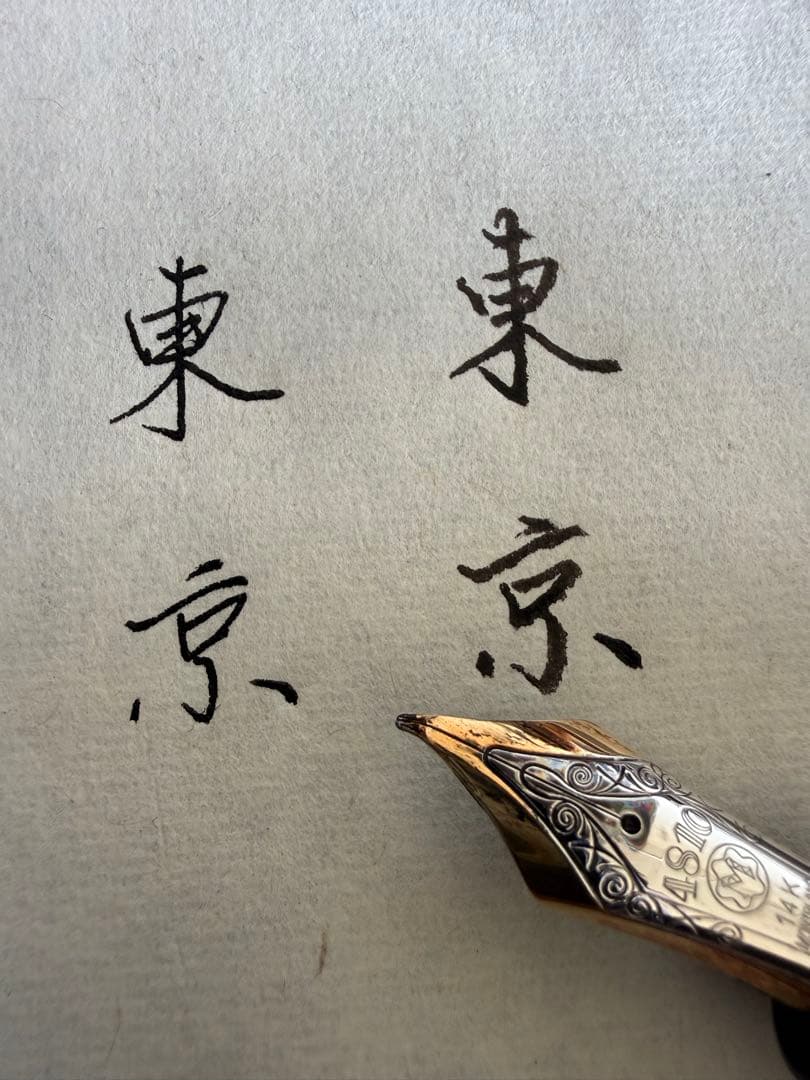 東 東
京 京
4810
M
14K